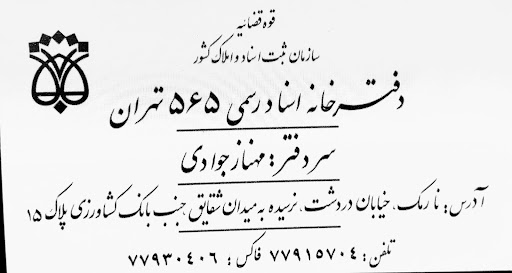 قوه قضائیه
سازمان ثبت اسناد و املاک کشور
دفترخانه اسناد رسمی ۵۶۵ تهران
سردفتر: مهناز جوادی
آدرس: نارمک، خیابان دردشت، نرسیده به میدان شقایق، جنب بانک کشاورزی پلاک ۱۵
تلفن: ۷۷۹۱۵۷۰۴ فاکس: ۷۷۹۳۰۴۰۶